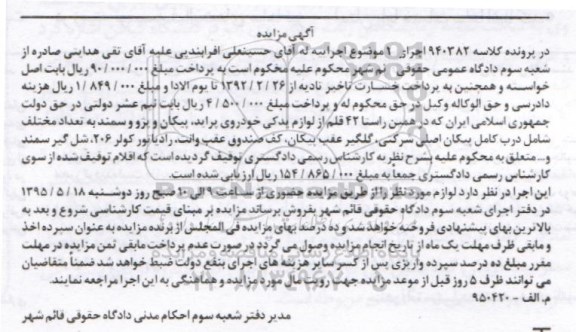 آگهی مزایده
در پرونده کلاسه ۹۴۰۳۸۲ اجرائی ۹ موضوع اجرائیه له آقای حسینعلی افرایندیی علیه آقای تقی هدایتی صادره از
شعبه سوم دادگاه عمومی حقوقی قائم شهر محکوم علیه محکوم است به پرداخت مبلغ ۹۰/۰۰۰/۰۰۰ ریال بابت اصل
خواسته و همچنین به پرداخت خسارت تاخیر تادیه از ۱۳۹۲/۲/۲۶ تا یوم الادا و مبلغ ۱/۸۴۹/۰۰۰ ریال هزینه
دادرسی و حق الوکاله وکیل در حق محکوم له و پرداخت مبلغ ۴/۵۰۰/۰۰۰ ریال بابت نیم عشر دولتی در حق دولت
جمهوری اسلامی ایران که در همین راستا ۴۲ قلم از لوازم یدکی خودروی پراید، پیکان و پژو و سمند به تعداد مختلف
شامل درب کامل پیکان اصلی شرکتی، گلگیر عقب پیکان، کف صندوق عقب وانت، رادیاتور کولر ۲۰۶، شل گیر سمند
و... متعلق به محکوم علیه بشرح نظر به کارشناس رسمی دادگستری توقیف گردیده است که اقلام توقیف شده از سوی
کارشناس رسمی دادگستری جمعا به مبلغ ۱۵۴/۸۶۵/۰۰۰ ریال ارزیابی شده است.
این اجرا در نظر دارد لوازم مورد نظر را از طریق مزایده حضوری از ساعت ۹ الی ۱۰ صبح روز دوشنبه ۱۳۹۵/۵/۱۸
در دفتر اجرای شعبه سوم دادگاه حقوقی قائم شهر بفروش برساند مزایده بر مبنای قیمت کارشناسی شروع و بعد به
بالاترین بهای پیشنهادی فروخته خواهد شد و ده درصد بهای مزایده فی المجلس از برنده مزایده به عنوان سپرده اخذ
و مابقی ظرف مهلت یک ماه از تاریخ انجام مزایده وصول می گردد در صورت عدم پرداخت مابقی ثمن مزایده در مهلت
مقرر مبلغ ده درصد سپرده واریزی پس از کسر سایر هزینه های اجرای بنفع دولت ضبط خواهد شد ضمنا متقاضیان
می توانند ظرف ۵ روز قبل از موعد مزایده جهت رویت مال مورد مزایده و هماهنگی به این اجرا مراجعه نمایند.
م.الف - ۹۵۰۴۲۰
مدیر دفتر شعبه سوم احکام مدنی دادگاه حقوقی قائم شهر